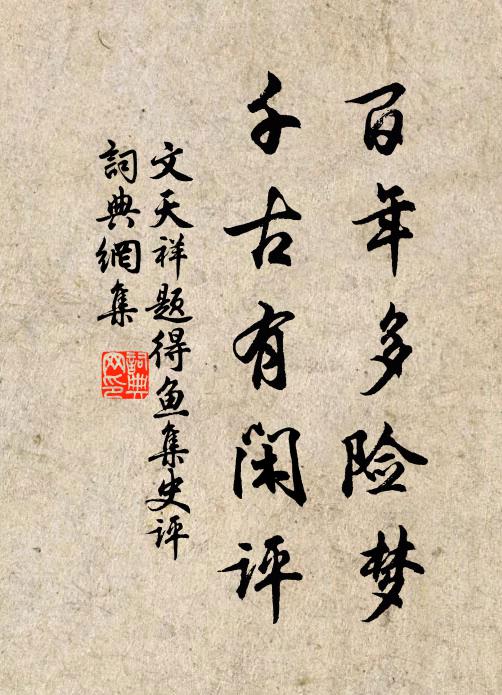 百年多险梦
千古有闲评
文天祥题得鱼集史评
詞典網集
詞典网印